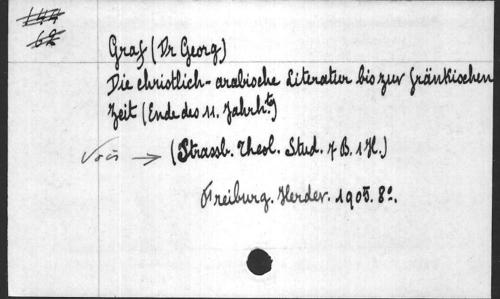 144
62
Graf (Dr Georg)
Die christlich-arabische Literatur bis zur fränkischen
Zeit (Ende des 11. Jahrhts)
Vois → (Strassb. Theol. Stud. 7 B. 1 H.)
Freiburg. Herder. 1905. 8º.